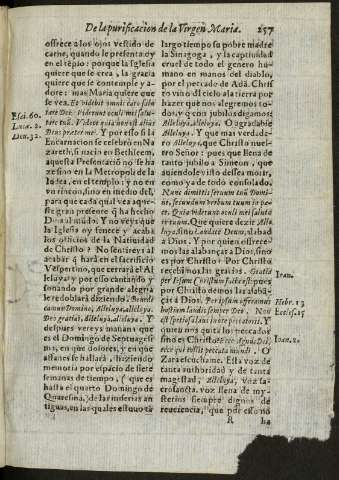 De la purificacion de la Virgen Maria. 257
offrece a los ojos vestido de
carne, quando le presenta oy
en el tẽplo: porque la Iglesia
quiere que se crea, la gracia
quiere que se contemple y a-
dore: mas Maria quiere que
se vea. Et videbit omnis caro salu
tare Dei. Viderunt oculi mei salu-
tare tuũ. Videte quia non est alius
Deus præter me. Y por esso si la
Encarnacion se celebrò en Na
zareth, si nacio en Bethleem,
aquesta Presentaciõ no se ha
ze sino en la Metropoli de la
Iudea, en el templo: y no en
vn rincon, sino en medio del,
para que cada qual vea aque-
ste gran presente q̃ ha hecho
Dios al mundo. Y no veys que
la Iglesia oy fenece y acaba
los officios de la Natiuidad
de Christo? No sentireys al
acabar q̃ harà en el sacrificio
Vespertino, que cerrarà el Al
leluya? y por esso cantando y
sonando por grande alegria
le redoblarà diziendo: Benedi
camus Domino, Alleluya, alleluya.
Deo gratias, Alleluya, alleluya. Y
despues vereys mañana que
es el Domingo de Septuagess
ima, en que dolores, y en que
ansias se hallarà, haziendo
memoria por espacio de siete
semanas de tiempo, (que es
hasta el quarto Domingo de
Quaresma,) de las miserias an
tiguas, en las quales estuuo tã
largo tiempo su pobre madre
la Sinagoga, y la captiuidad
cruel de todo el genero hu-
mano en manos del diablo,
por el peccado de Adã. Chris
to vino del cielo a la tierra por
hazer que nos alegremos to-
dos, y q̃ con jubilo digamos
Alleluya, alleluya. O agradable
Alleluya. Y que mas verdade-
ro Alleluya, que Christo nues-
tro Señor: pues que llena de
tanto jubilo a Simeon, que
auiendole visto dessea morir,
como ya de todo consolado.
Nunc dimittis seruum tuũ Domi-
ne, secundum verbum tuum in pa-
ce. Quia viderunt oculi mei saluta
re tuum. Que quiere dezir Alle-
luya, sino Laudate Deum, alabad
a Dios. Y por quien offrece-
mos las alabanças a Dios, sino
es por Christo? Por Christo
recebimos las gracias. Gratia
per Iesum Christum facta est: pues
por Christo demos las alabã-
ças à Dios. Per ipsum offeramus
hostiam laudis semper Deo. Non
est speciosa laus in ore peccatoris. Y
quien nos quita los peccados
sino es Christo? Ecce agnus Dei,
ecce qui tollit peccata mundi. O
Zarza escuchame. Esta voz de
tanta authoridad y de tanta
magestad, Alleluya, voz sa-
crosancta, voz llena de my-
sterios siempre dignos de
reuerencia, que por esso no
R ha
Esai. 60.
Lucæ. 2.
Deu. 32.
Ioan. 1.
Hebr. 13
Eccles. 15
Ioan. 1.